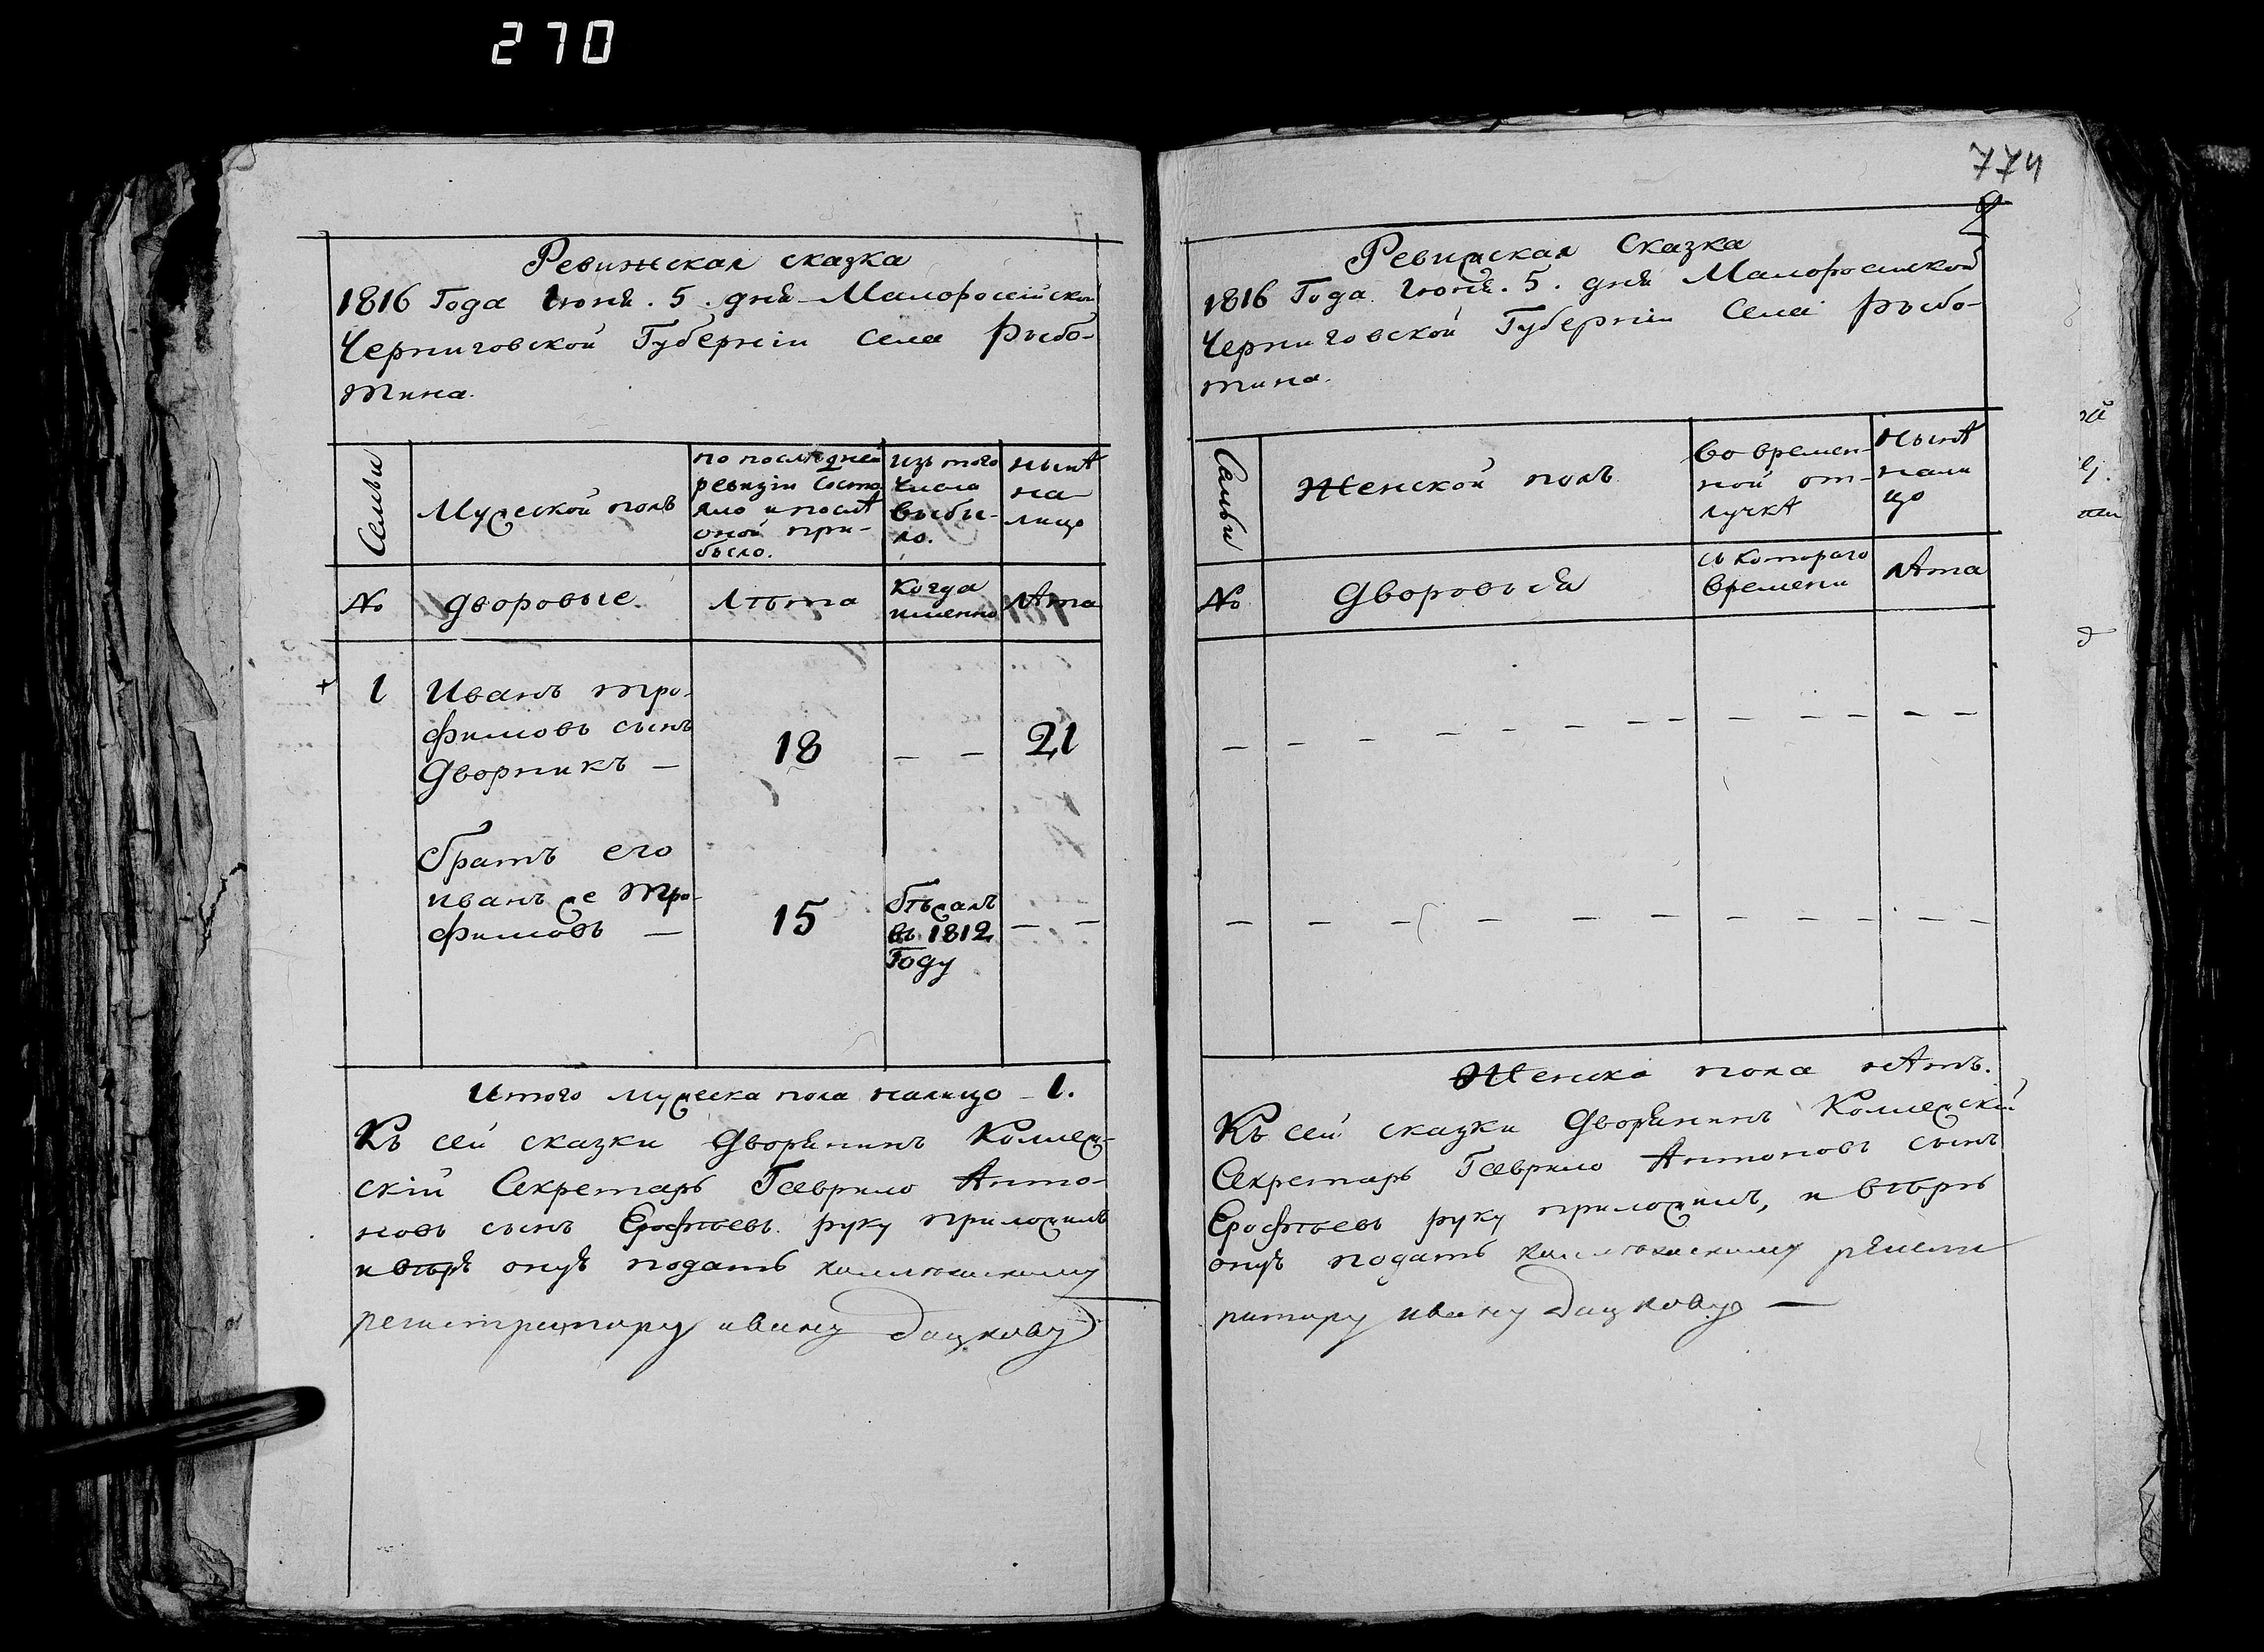 270
774
Ревижская сказка
1816 Года Июня. 5. дня Малоросiйской
Черниговской Губернiи Села Рыбо-
тина.
Семьи
Мужеской полъ
по последней
ревизiи Состо
яло и после
оной при-
было.
изъ того
Числа
выбы-
ло.
ныне
на
лицо
№
дворовые.
Лѣта
Когда
именно
Лета
1
Иванъ тро-
фимовъ сынъ
Дворникъ —
18
— —
21
Братъ его
иванъ же тро-
фимовъ —
15
бѣжалъ
въ 1812
Году
— —
Итого мужеска пола налицо - 1.
Къ сей сказки Дворянинъ Коллеж-
скiй Секретарь Гаврило Анто-
новъ сынъ Ерофѣевъ руку приложилъ
и вѣрю онуя подать коллежскому
регистратору ивану Дацкову
Ревижская Сказка
1816 Года Июня. 5. дня Малоросииской
Черниговской Губернiи Села Рыбо-
тина.
Семьи
Женской полъ
во времен-
ной от-
лучке
ныне
нали
цо
№
Дворовыя
съ котораго
времени
Лета
Женска пола нетъ.
Къ сей сказки Дворянинъ Коллежскiй
Секретарь Гаврило Антоновъ сынъ
Ерофѣевъ руку приложилъ, и вѣрю
онуя подать
ивану Дацкову —